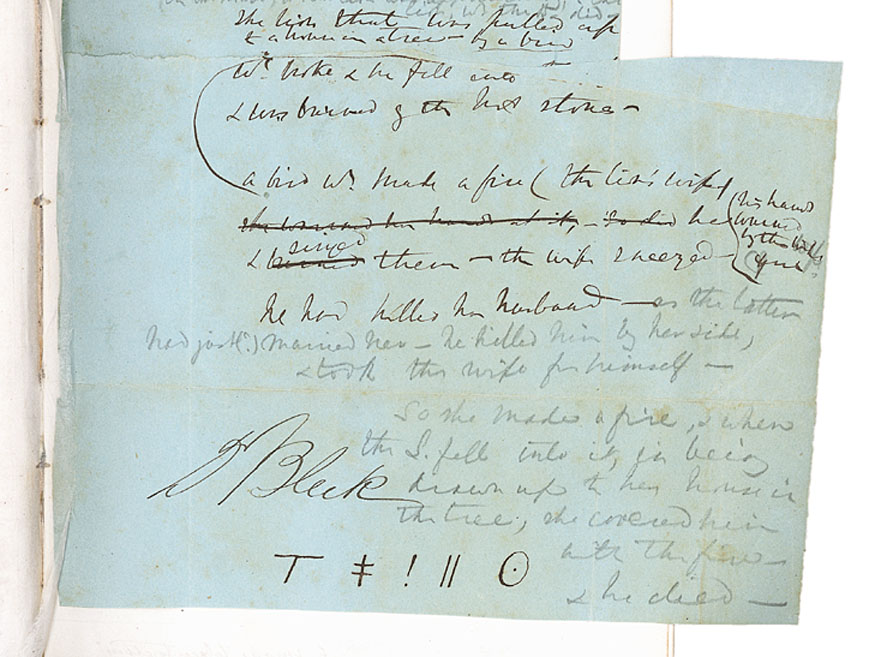 The lion that was killed
& a woman in a tree — by a bird
wh. broke & he fell into
& was burned by the hot stones —
a bird wh. made a fire (the lion's wife)
she warmed her hands at it, — so did he
(his hand
warmed
by the
fire
& burned singed them — the wife sneezed —
he had killed her husband — as the latter
had just(?) married her — he killed him by her side,
& took the wife for himself —
So she made a fire, & when
the L. fell into it, in being
drawn up to her house in
the tree, she covered him
with the fire —
& he died —
Dr Bleek
ꓔ ǂ ! ǁ ʘ